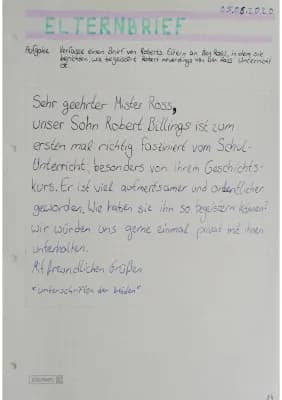 05.05.2020
ELTERNBRIEF
Aufgabe: Verfasse einen Brief von Roberts Eltern an Ben Ross, in dem sie
berichten, wie begeistert Robert neuerdings von Ben Ross Unterricht
ist.
Sehr geehrter Mister Ross,
unser Sohn Robert Billings ist zum
ersten mal richtig fasziniert vom Schul-
Unterricht, besonders von Ihrem Geschichts-
kurs. Er ist viel aufmerksamer und ordentlicher
geworden. Wie haben sie ihn so begeistern können?
Wir würden uns gerne einmal privat mit ihnen
unterhalten.
Mit freundlichen Grüßen
*unterschriften der beiden*